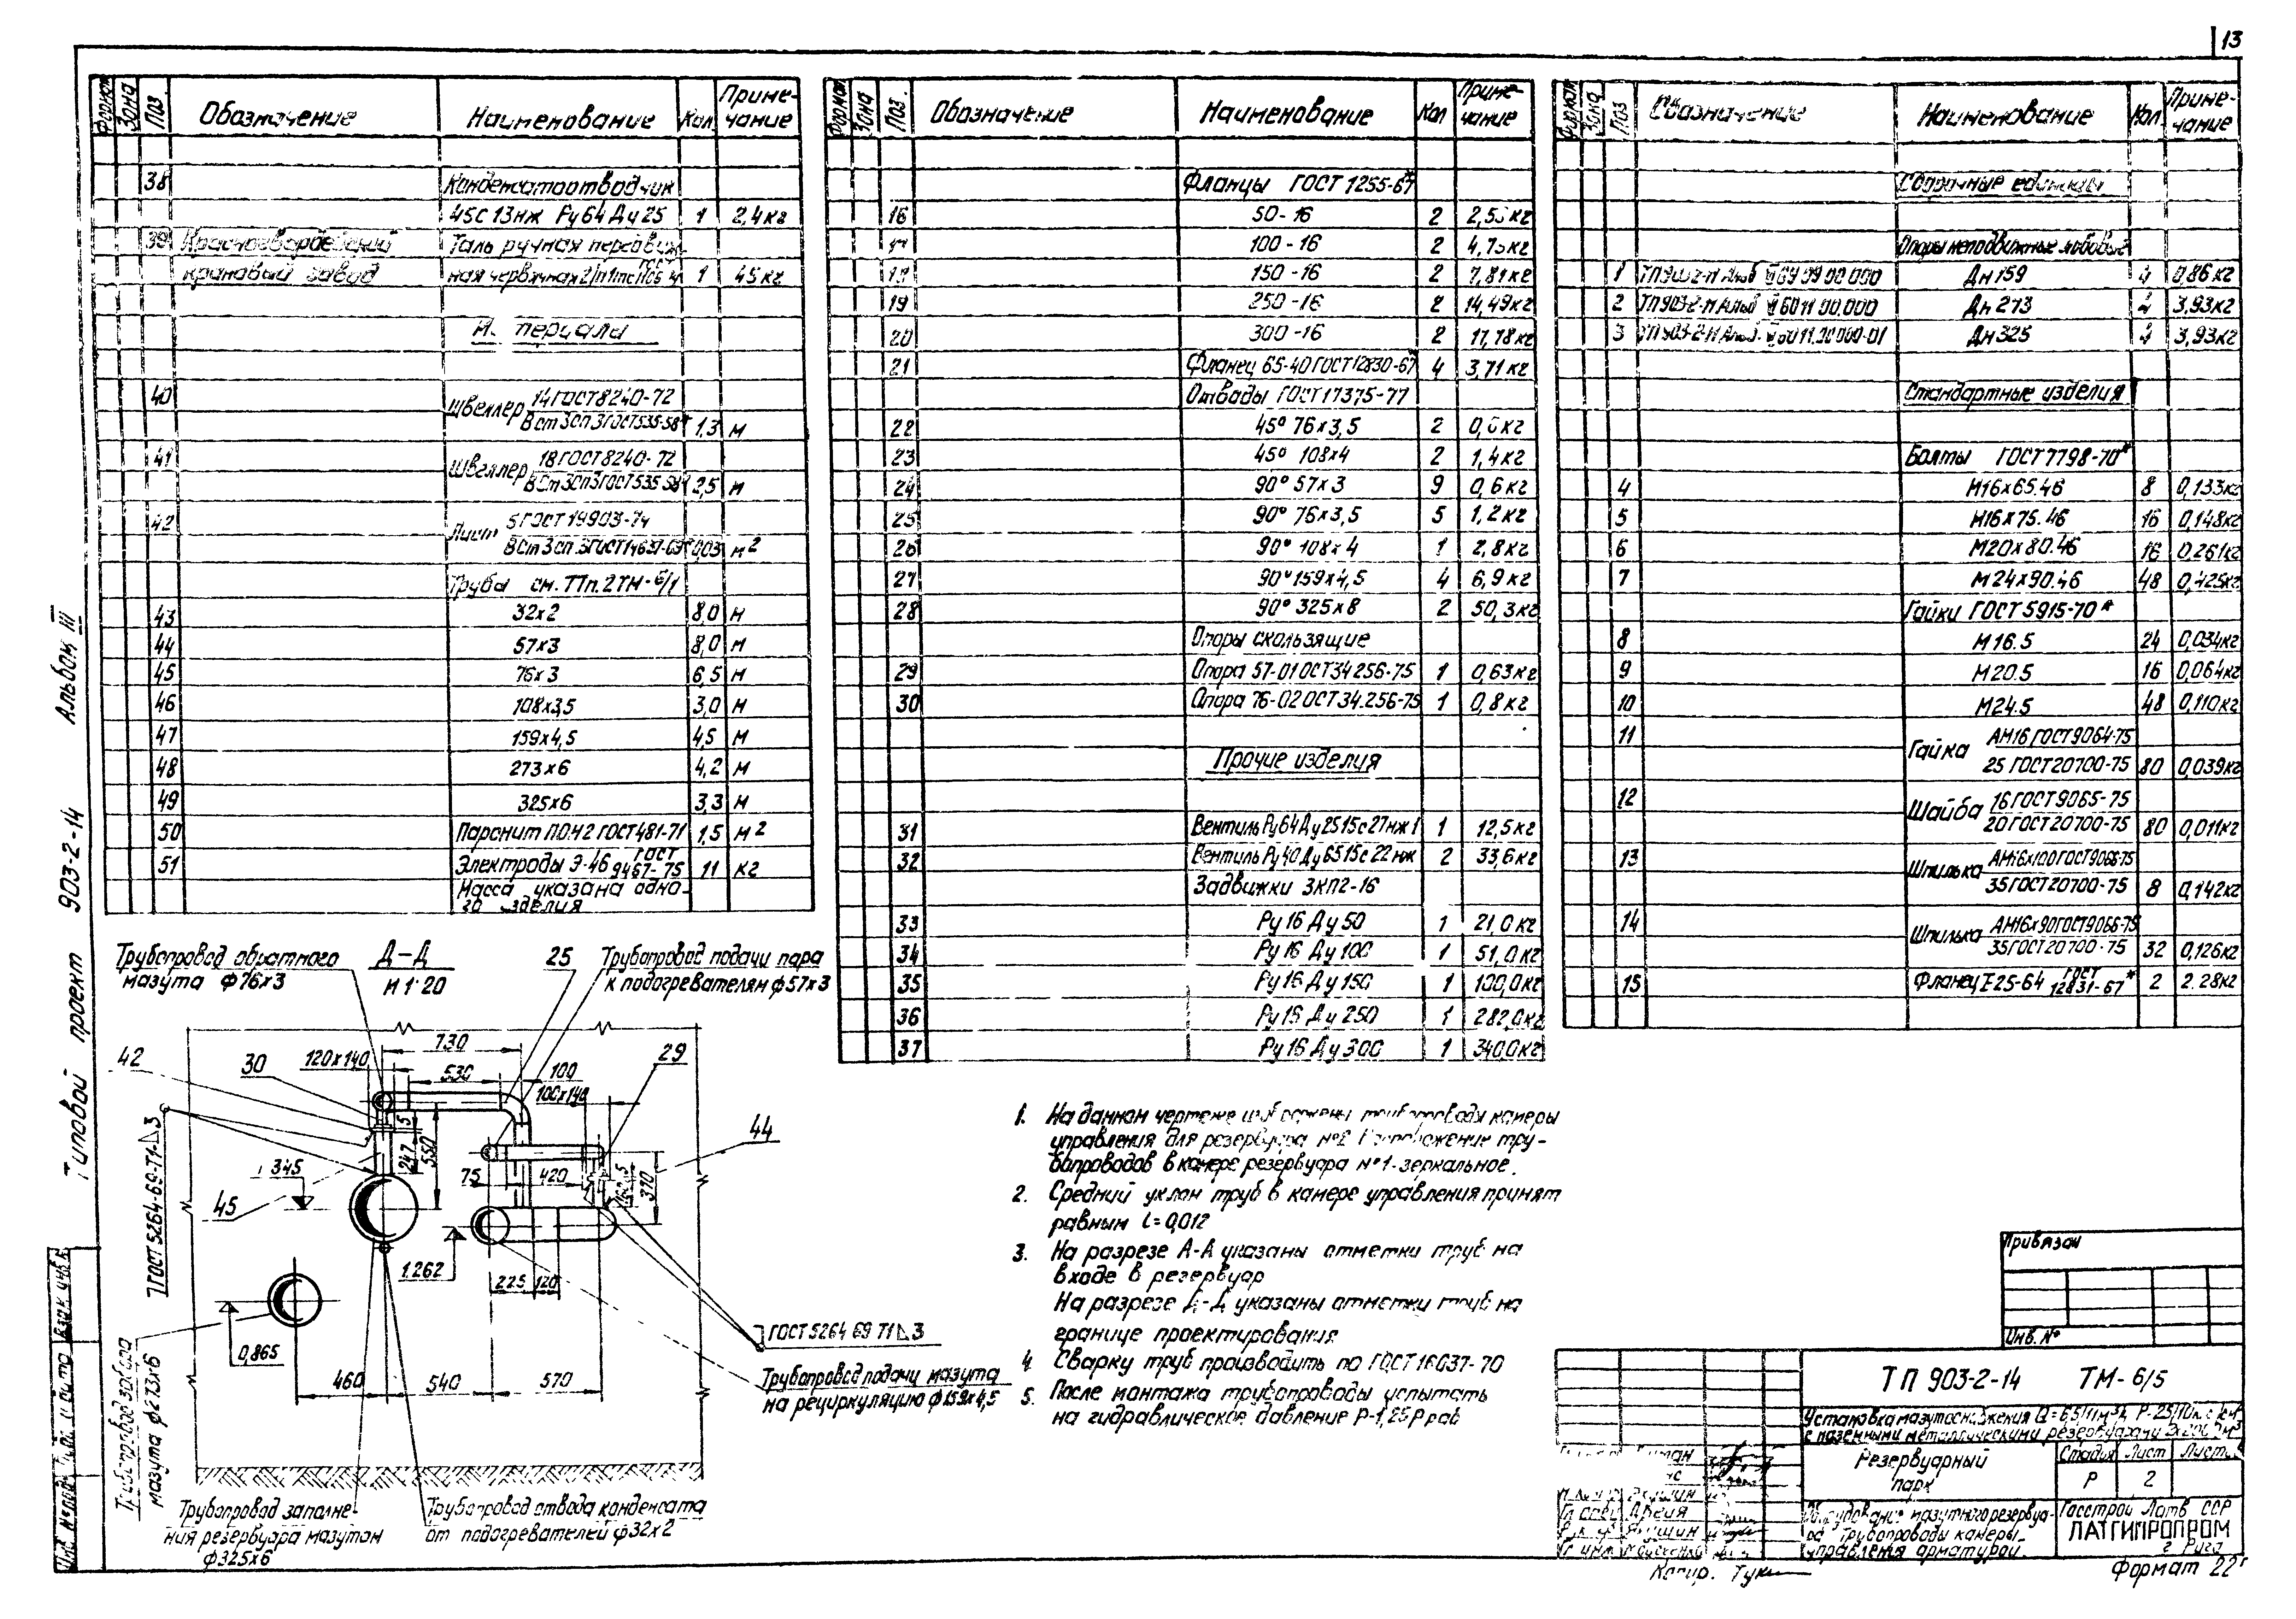 13
Формат Зона Поз. Обозначение Наименование Кол Приме-чание
38 Конденсатоотводчик
45с13нж Ру64 Ду25 1 2,4кг
39 Красногвардейский Таль ручная передвиж-
крановый завод ная червячная 1 45кг
40 Швеллер 14 ГОСТ 8240-72
ВСт3сп3ГОСТ535-58* 1,3 м
41 Швеллер 18 ГОСТ 8240-72
ВСт3сп3ГОСТ535-58* 2,5 м
42 Лист 5 ГОСТ 19903-74
ВСт3сп3ГОСТ14637-69* 0,03 м2
Трубы см. ТТп.2ТМ-6/1
43 32х2 8,0 м
44 57х3 8,0 м
45 76х3 6,5 м
46 108х3,5 3,0 м
47 159х4,5 4,5 м
48 273х6 4,2 м
49 325х6 3,3 м
50 Паронит ПОН2 ГОСТ481-71 1,5 м2
51 Электроды Э-46 ГОСТ 9467-75 11 кг
Масса указана одно-
го изделия
Формат Зона Поз. Обозначение Наименование Кол Приме-чание
Фланцы ГОСТ 1255-67*
16 50-16 2
17 100-16 2 4,73кг
18 150-16 2 7,81кг
19 250-16 2 14,49кг
20 300-16 2 17,78кг
21 Фланец 65-40 ГОСТ12830-67* 4 3,71кг
Отводы ГОСТ 17375-77
22 45° 76х3,5 2 0,6кг
23 45° 108х4 2 1,4кг
24 90° 57х3 9 0,6кг
25 90° 76х3,5 5 1,2кг
26 90° 108х4 1 2,8кг
27 90° 159х4,5 4 6,9кг
28 90° 325х8 2 50,3кг
Опоры скользящие
29 Опора 57-01 ОСТ34 256-75 1 0,63кг
30 Опора 76-02 ОСТ 34.256-75 1 0,8кг
Прочие изделия
31 Вентиль Ру64 Ду25 15с27нж1 1 12,5кг
32 Вентиль Ру40 Ду65 15с22нж 2 33,6кг
Задвижки ЗКП2-16
33 Ру 16 Ду 50 1 21,0кг
34 Ру 16 Ду 100 1 51,0кг
35 Ру 16 Ду 150 1 100,0кг
36 Ру 16 Ду 250 1 282,0кг
37 Ру 16 Ду 300 1 340,0кг
Формат Зона Поз Обозначение Наименование Кол. Приме-чание
Сборочные единицы
Опоры неподвижные лобовые
1 Дн 159 4 0,86кг
2 Дн 273 3,93кг
3 Дн 325 3,93кг
Стандартные изделия
Болты ГОСТ 7798-70*
4 М16х65.46 8 0,133кг
5 М16х75.46 16 0,148кг
6 М20х80.46 16 0,261кг
7 М24х90.46 48 0,425кг
Гайки ГОСТ 5915-70*
8 М16.5 24 0,034кг
9 М20.5 16 0,064кг
10 М24.5 48 0,110кг
11 Гайка АМ16 ГОСТ9064-75
25 ГОСТ20700-75 80 0,039кг
12 Шайба 16 ГОСТ9065-75
20 ГОСТ20700-75 80 0,011кг
13 Шпилька АМ16х100 ГОСТ9066-75
35 ГОСТ20700-75 8 0,142кг
14 Шпилька АМ16х90 ГОСТ9066-75
35 ГОСТ20700-75 32 0,126кг
15 Фланец I-25-64 ГОСТ 12831-67* 2 2.28кг
Типовой проект 903-2-14 Альбом III
Трубопровод обратного
мазута ф76х3
Д-Д
М 1:20
25
Трубопровод подачи пара
к подогревателям ф57х3
42
30
120х140
730
530
100
100х140
29
44
5
247
550
345
45
75
420
370
1.262
225
120
0,865
460
540
570
ГОСТ 5264-69-Т1-△3
ГОСТ 5264 69 Т1△3
Трубопровод подачи мазута
на рециркуляцию ф159х4,5
Трубопровод забора
мазута ф273х6
Трубопровод заполне-
ния резервуара мазутом
ф325х6
Трубопровод отвода конденсата
от подогревателей ф32х2
1. На данном чертеже изображены трубопроводы камеры
управления для резервуара №2 Расположение тру-
бопроводов в камере резервуара №1-зеркальное.
2. Средний уклон труб в камере управления принят
равным i=0,012
3. На разрезе А-А указаны отметки труб на
входе в резервуар
На разрезе Д-Д указаны отметки труб на
границе проектирования
4 Сварку труб производить по ГОСТ 16037-70
5. После монтажа трубопроводы испытать
на гидравлическое давление Р-1,25Р раб
Привязан
Инв. №
ТП 903-2-14 ТМ-6/5
Установка мазутоснабжения
с наземными металлическими резервуарами
Резервуарный
парк
Стадия Лист Листов
Р 2
Оборудование мазутного резервуа-
ра Трубопроводы камеры
управления арматурой.
Госстрой Латв ССР
ЛАТГИПРОПРОМ
г Рига
Формат 22г